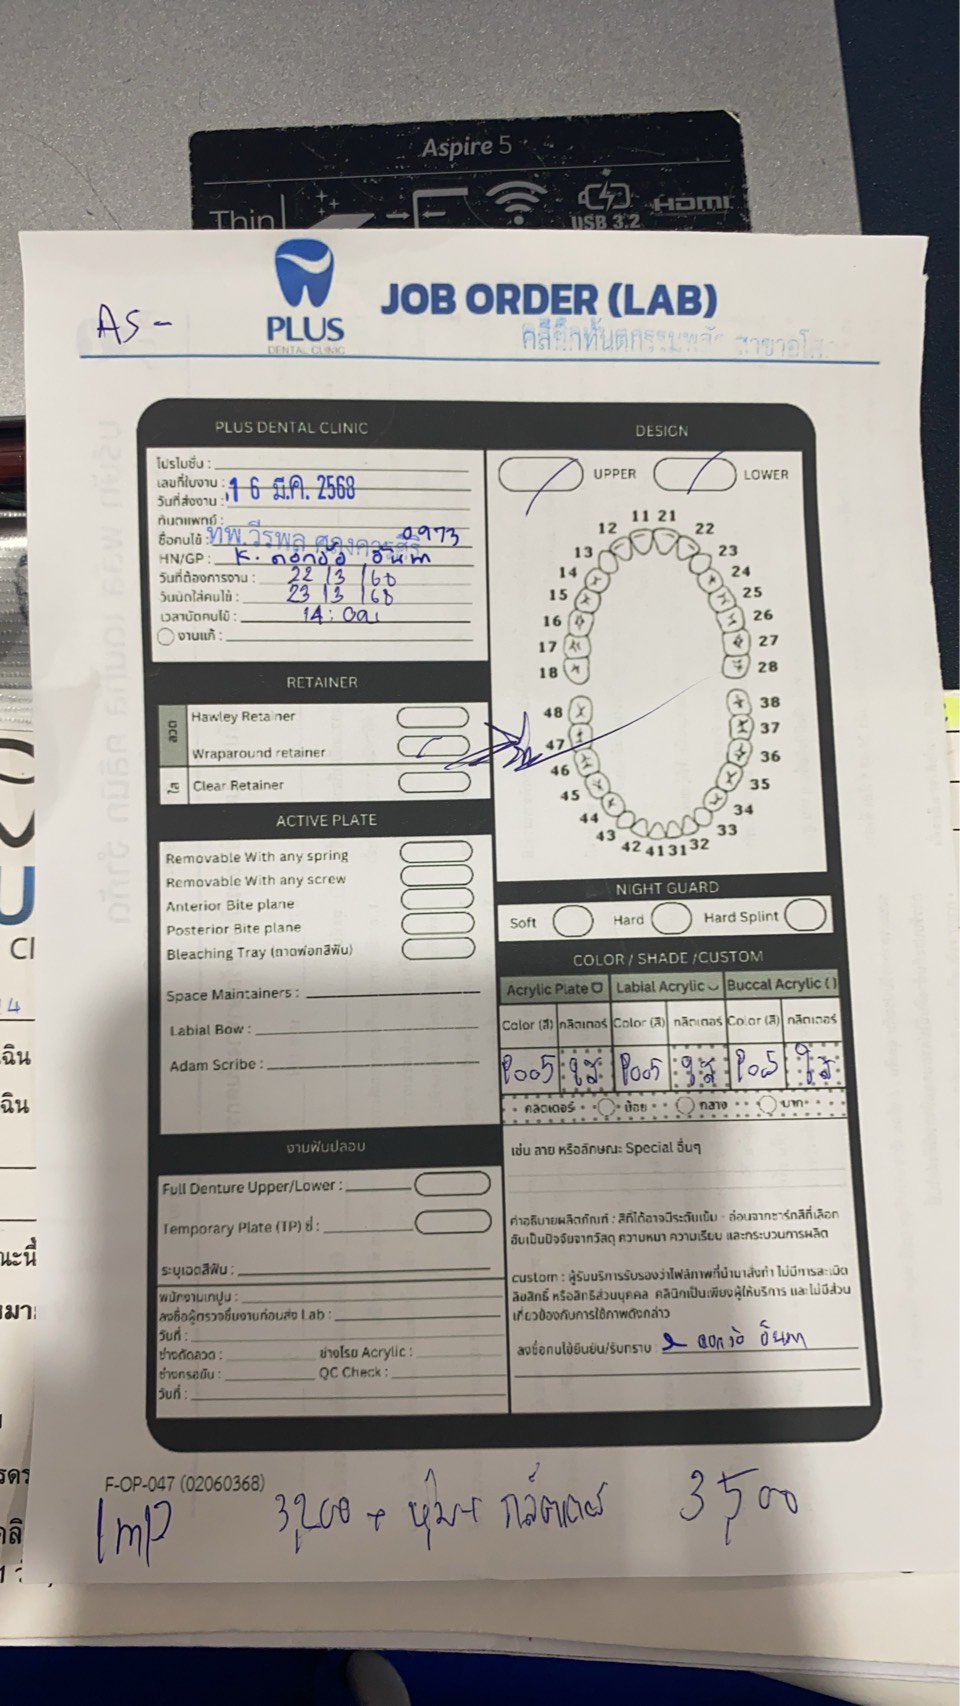 Aspire 5
Thin
USB 3.2
HDMI
AS -
PLUS
DENTAL CLINIC
JOB ORDER (LAB)
คลินิกทันตกรรมพลัส สาขาอโศก
PLUS DENTAL CLINIC
โปรโมชั่น :
เลขที่ใบงาน :
วันที่ส่งงาน : 16 มี.ค. 2568
ทันตแพทย์ :
ชื่อคนไข้ : ทพ.วีรพล 0973
HN/GP : K.
วันที่ต้องการงาน : 22/3/68
วันนัดใส่คนไข้ : 23/3/68
เวลานัดคนไข้ : 14:00
งานแก้ :
RETAINER
ลวด
Hawley Retainer
Wraparound retainer
ใส
Clear Retainer
ACTIVE PLATE
Removable With any spring
Removable With any screw
Anterior Bite plane
Posterior Bite plane
Bleaching Tray (ถาดฟอกสีฟัน)
Space Maintainers :
Labial Bow :
Adam Scribe :
งานฟันปลอม
Full Denture Upper/Lower :
Temporary Plate (TP) ซี่ :
ระบุเฉดสีฟัน :
พนักงานเทปูน :
ลงชื่อผู้ตรวจชิ้นงานก่อนส่ง Lab :
วันที่ :
ช่างดัดลวด : ช่างโรย Acrylic :
ช่างกรอขัด : QC Check :
วันที่ :
DESIGN
UPPER LOWER
11 21
12 22
13 23
14 24
15 25
16 26
17 27
18 28
48 38
47 37
46 36
45 35
44 34
43 33
42 41 31 32
NIGHT GUARD
Soft Hard Hard Splint
COLOR / SHADE /CUSTOM
Acrylic Plate Labial Acrylic Buccal Acrylic ( )
Color (สี) กลิตเตอร์ Color (สี) กลิตเตอร์ Color (สี) กลิตเตอร์
P005 ใส P005 ใส P005 ใส
กลิตเตอร์ น้อย กลาง มาก
เช่น ลาย หรือลักษณะ Special อื่นๆ
คำอธิบายผลิตภัณฑ์ : สีที่ได้อาจมีระดับเข้ม - อ่อนจากชาร์ทสีที่เลือก
อันเป็นปัจจัยจากวัสดุ ความหนา ความเรียบ และกระบวนการผลิต
custom : ผู้รับบริการรับรองว่าไฟล์ภาพที่นำมาสั่งทำ ไม่มีการละเมิด
ลิขสิทธิ์ หรือสิทธิส่วนบุคคล คลินิกเป็นเพียงผู้ให้บริการ และไม่มีส่วน
เกี่ยวข้องกับการใช้ภาพดังกล่าว
ลงชื่อคนไข้ยืนยัน/รับทราบ :
F-OP-047 (02060368)
Imp 3,200 + กลิตเตอร์ 3,500